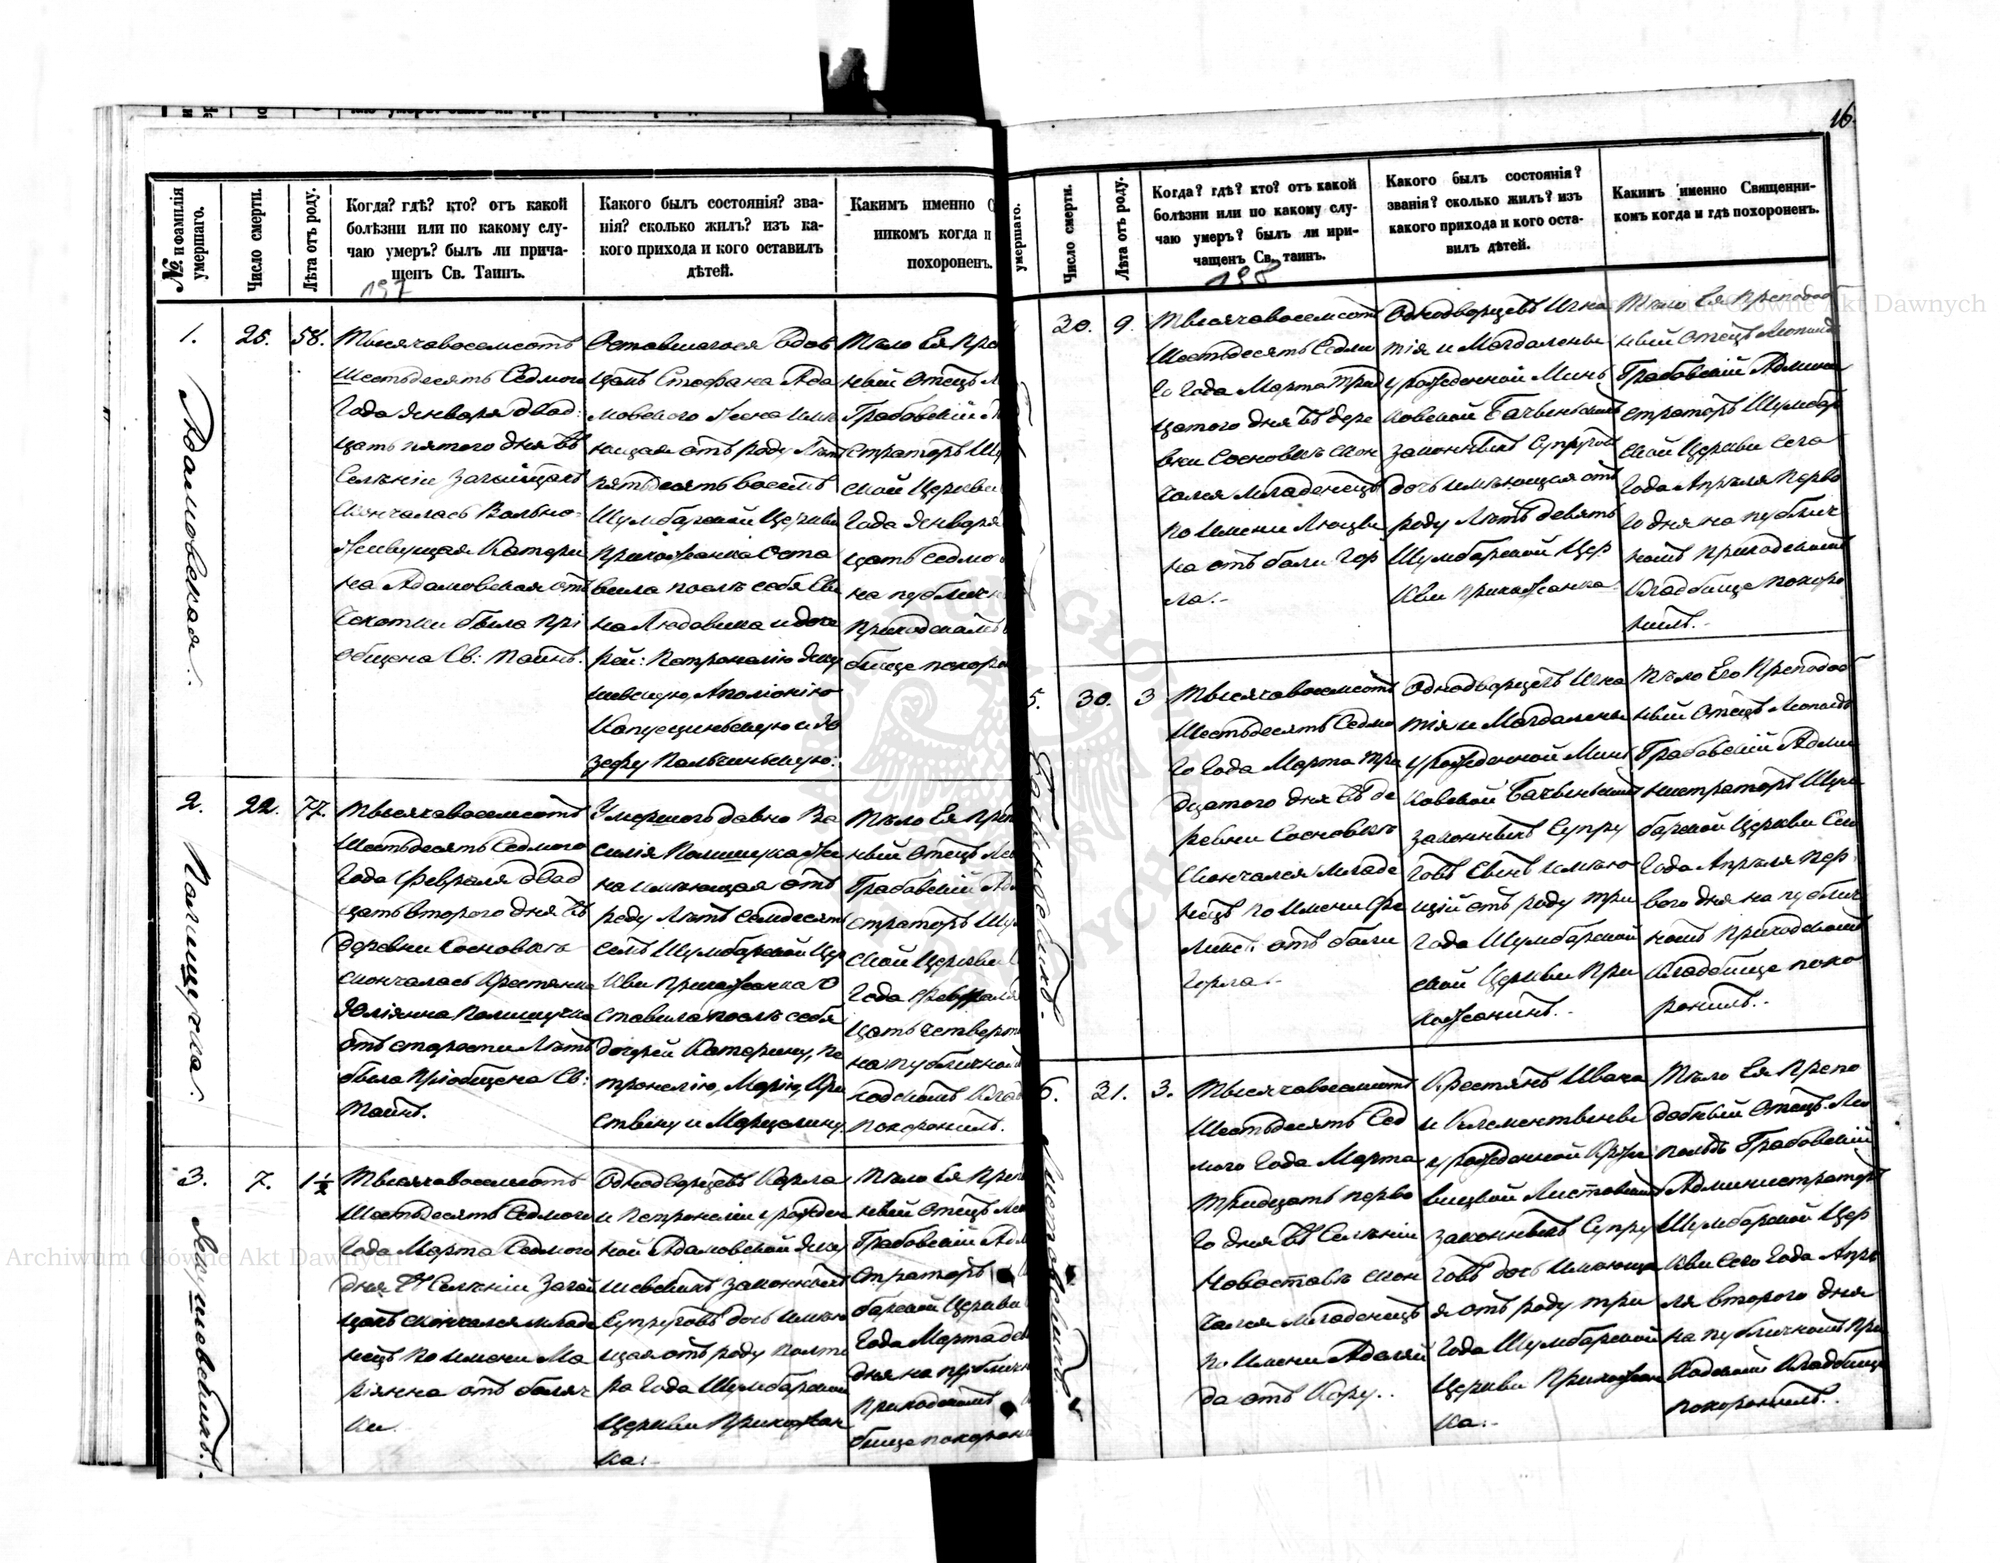 197
№ и фамилія умершаго.
Число смерти.
Лѣта отъ роду.
Когда? гдѣ? кто? отъ какой
болѣзни или по какому слу-
чаю умеръ? былъ ли прича-
щенъ Св. Таинъ.
Какого былъ состоянія? зва-
нія? сколько жилъ? изъ ка-
кого прихода и кого оставилъ
дѣтей.
Какимъ именно
никомъ когда и
похороненъ.
1.
Адамовская.
25.
58.
Тысячавосемсотъ
Шестьдесятъ Седмого
Года Января двад:
цать пятого дня въ
Селѣніи
Скончалась Вольно-
живущая Катери
на Адамовская отъ
Сухотки была прі
общена Св: Таинъ.
Оставшагося вдов
цемъ Стефана Ада
мовского Жена имѣ
ющая отъ роду Лѣтъ
пятьдесятъ восемъ
Шумбарской Церкви
Прихожанка Оста
вила послѣ себя Сы
на Людовика и доче
рей: Петронелію Яку
шевскую, Аполіонію
Капусциньскую и Ю
зефу Пальчиньскую.
Тѣло Ея Пре
ный Отецъ Л
Грабовскій А
страторъ Шу
ской Церкви
Года Января
цать Седмо
на публичн
Приходскомъ
бище похоро
2.
Полищучка.
22.
77.
Тысячавосемсотъ
Шестьдесятъ Седмого
Года Февраля двад
цать второго дня въ
деревни Сосновкѣ
скончалась Крестянка
Юліянна Полищучка
отъ старости Лѣтъ
была Пріобщена Св:
Таинъ.
Умершого давно Ва
силія Полищука Же
на имѣющая отъ
роду Лѣтъ Семдесятъ
семъ Шумбарской Цер
кви Прихожанка О
ставила послѣ себя
дочерей Катерину, Пе
тронелію, Марію, Кри
стину и Марцелину.
Тѣло Ея Преп
ный Отецъ Ле
Грабовскій Ад
страторъ Шу
ской Церкви
Года Февраля
цать четверт
на публичном
ходскомъ Клад
похоронилъ.
3.
Якушевскихъ.
7.
1½
Тысячавосемсотъ
Шестьдесятъ Седмого
Года Марта Седмого
дня въ Селѣніи
скончался младе
нецъ по имени Ма
ріянна отъ болячки
ки.
Однодворцевъ Карла
и Петронеліи урожден
ной Адамовской Яку
шевскихъ законныхъ
Супруговъ дочь имѣю
щая отъ роду Полто
ра Года Шумбарской
Церкви Прихожан
ка.-
Тѣло Ея Преп
ный Отецъ Лео
Грабовскій Адм
страторъ
барской Церкви
Года Марта
дня на публичн
Приходскомъ
бище похорон
16.
198
умершаго.
Число смерти.
Лѣта отъ роду.
Когда? гдѣ? кто? отъ какой
болѣзни или по какому слу-
чаю умеръ? былъ ли при-
чащенъ Св. таинъ.
Какого былъ состоянія?
званія? сколько жилъ? изъ
какого прихода и кого оста-
вилъ дѣтей.
Какимъ именно Священни-
комъ когда и гдѣ похороненъ.
30.
9.
Тысячавосемсотъ
Шестьдесятъ Седмо
го Года Марта трид
цатого дня въ дере
вни Сосновкѣ скон
чался Младенецъ
по имени Люцы
на отъ боли гор
ла.-
Однодворцевъ Игна
тія и Магдалены
урожденной Минь
ковской
законныхъ Супруговъ
дочь имѣющая отъ
роду Лѣтъ девять
Шумбарской Цер
кви Прихожанка
Тѣло Ея Преподоб
ный Отецъ Леопольдъ
Грабовскій Админи
страторъ Шумбар
ской Церкви Сего
Года Апрѣля Перво
го дня на публич
номъ Приходскомъ
Кладбище похоро
нилъ.-
5.
30.
3
Тысячавосемсотъ
Шестьдесятъ Седмо
го Года Марта три
дцатого дня въ де
ревни Сосновкѣ
скончался младе
нецъ по имени Фе
ликсъ отъ боли
горла.-
Однодворцевъ Игна
тія и Магдалены
урожденной Минь
ковской
законныхъ Супру
говъ Сынъ имѣю
щій отъ роду три
Года Шумбарской
ской Церкви При
хожанинъ.-
Тѣло Его Преподоб
ный Отецъ Леопольдъ
Грабовскій Адми
нистраторъ Шум
барской Церкви Сего
Года Апрѣля пер
вого дня на публич
номъ Приходскомъ
Кладбище похо
ронилъ.-
6.
Листовскихъ.
31.
3.
Тысячавосемсотъ
Шестьдесятъ Сед
мого Года Марта
тридцать перво
го дня въ Селѣніи
Новоставѣ скон
чался Младенецъ
по имени Аделяй
да отъ Кору..
Крестянъ Ивана
и Клементыны
урожденной
Листовскихъ
законныхъ Супру
говъ дочь имѣюща
я отъ роду три
Года Шумбарской
Церкви Прихожан
ка.-
Тѣло Ея Препо
добный Отецъ Лео
польдъ Грабовскій
Администраторъ
Шумбарской Цер
кви Сего Года Апрѣ
ля второго дня
на публичномъ При
ходскомъ Кладбище
похоронилъ.-
Archiwum Główne Akt Dawnych
Archiwum Główne Akt Dawnych